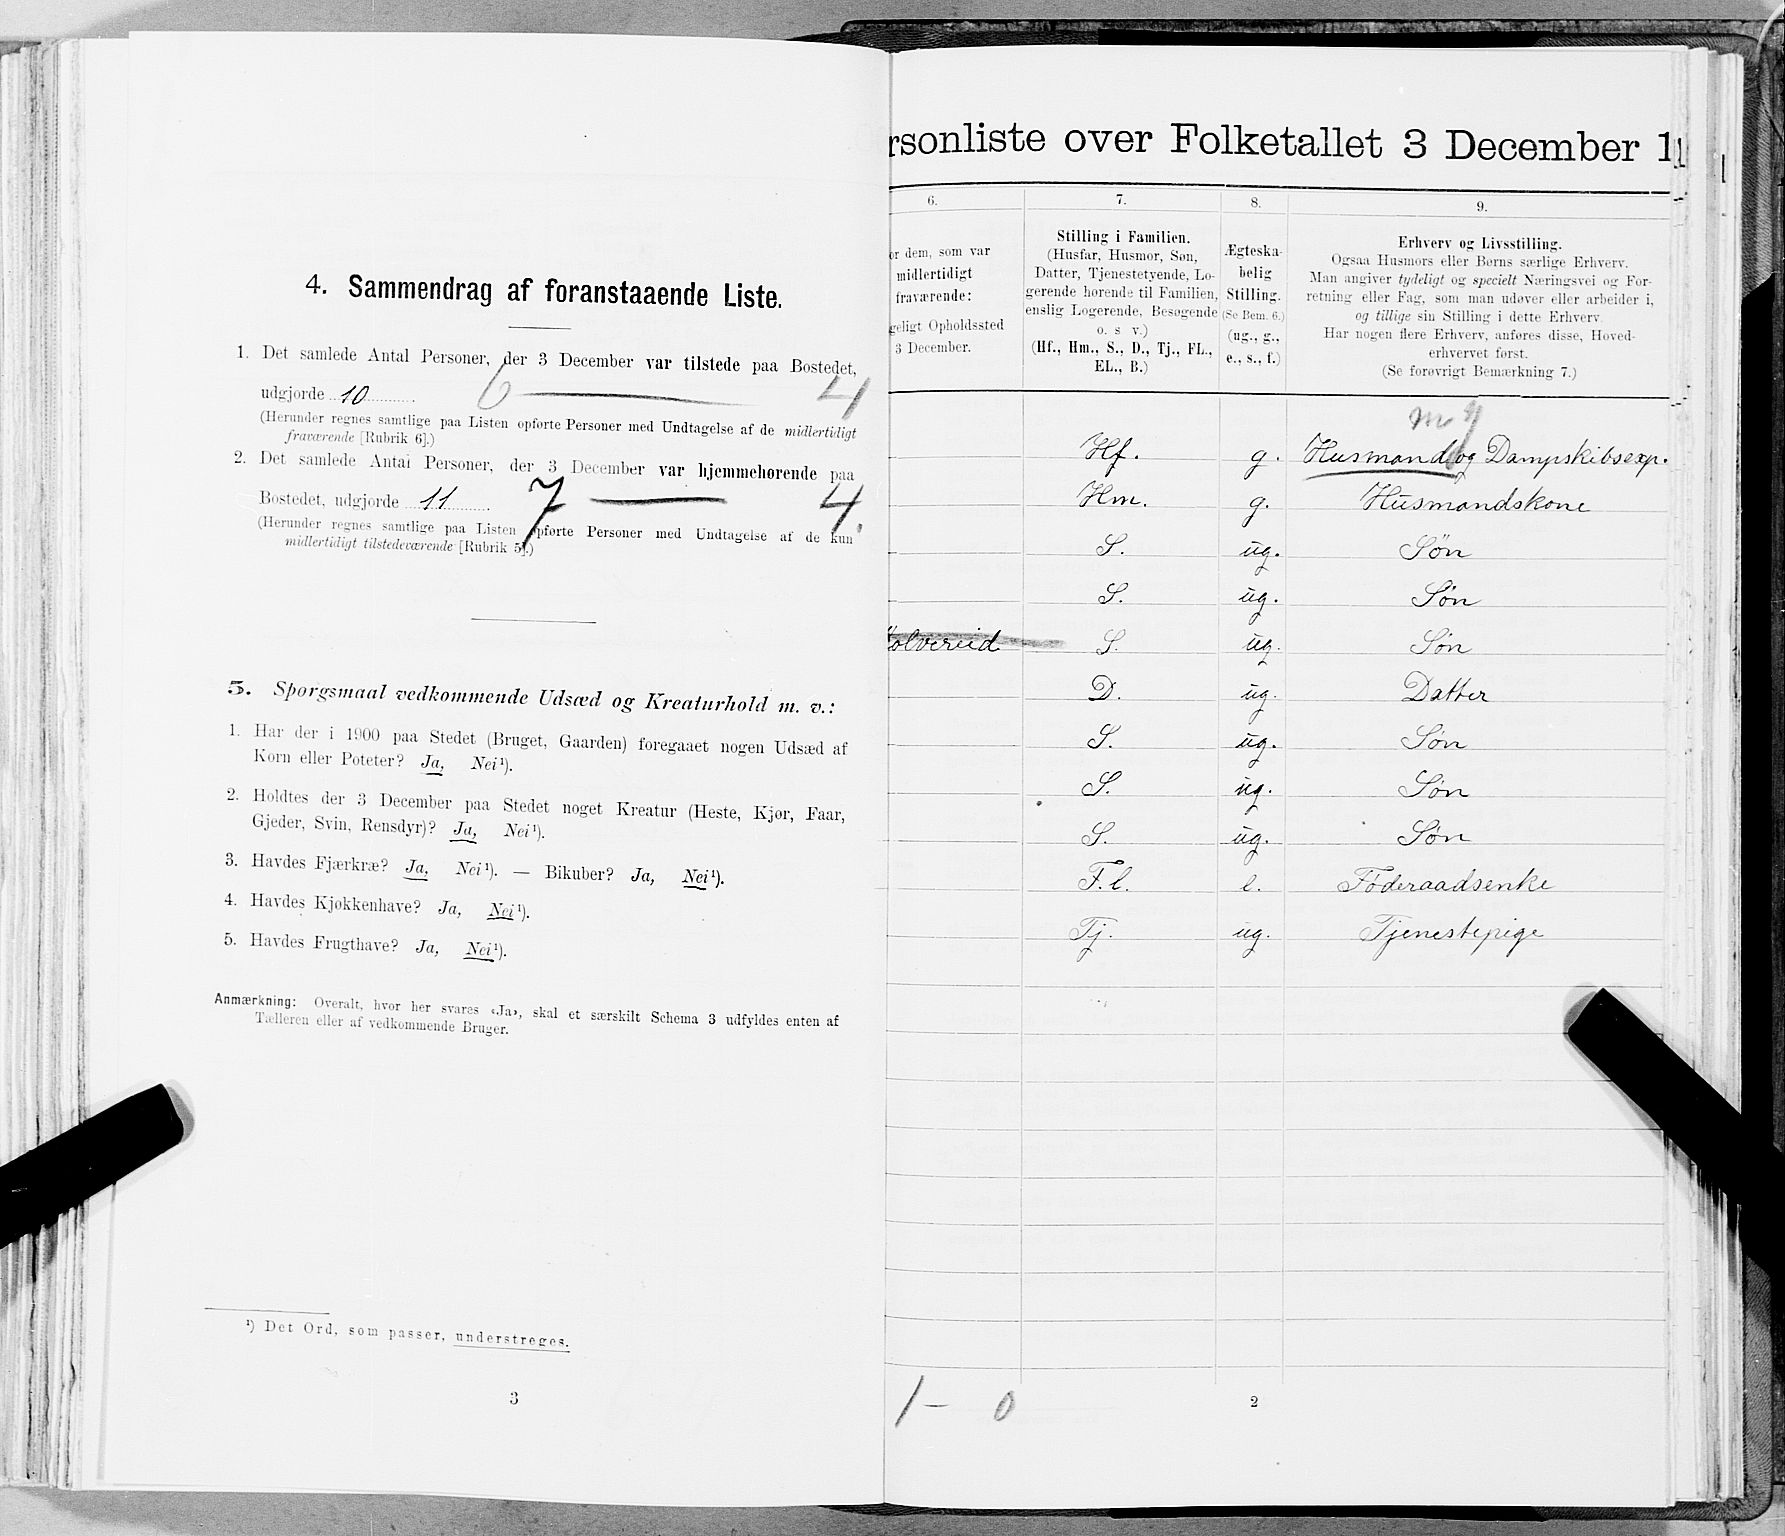 4. Sammendrag af foranstaaende Liste.
1. Det samlede Antal Personer, der 3 December var tilstede paa Bostedet,
udgjorde 10 6 — 4
(Herunder regnes samtlige paa Listen opførte Personer med Undtagelse af de midlertidigt
fraværende [Rubrik 6].)
2. Det samlede Antal Personer, der 3 December var hjemmehørende paa
Bostedet, udgjorde 11 7 — 4.
(Herunder regnes samtlige paa Listen opførte Personer med Undtagelse af de kun
midlertidigt tilstedeværende [Rubrik 5].)
5. Spørgsmaal vedkommende Udsæd og Kreaturhold m. v.:
1. Har der i 1900 paa Stedet (Bruget, Gaarden) foregaaet nogen Udsæd af
Korn eller Poteter? Ja, Nei¹).
2. Holdtes der 3 December paa Stedet noget Kreatur (Heste, Kjør, Faar,
Gjeder, Svin, Rensdyr)? Ja, Nei¹).
3. Havdes Fjærkræ? Ja, Nei¹). — Bikuber? Ja, Nei¹).
4. Havdes Kjøkkenhave? Ja, Nei¹).
5. Havdes Frugthave? Ja, Nei¹).
Anmærkning: Overalt, hvor her svares «Ja», skal et særskilt Schema 3 udfyldes enten af
Tælleren eller af vedkommende Bruger.
¹) Det Ord, som passer, understreges.
3
rsonliste over Folketallet 3 December 1
6.
or dem, som var
midlertidigt
fraværende:
geligt Opholdssted
3 December.
7.
Stilling i Familien.
(Husfar, Husmor, Søn,
Datter, Tjenestetyende, Lo-
gerende hørende til Familien,
enslig Logerende, Besøgende
o. s. v.)
(Hf., Hm., S., D., Tj., FL.,
EL., B.)
8.
Ægteska-
belig
Stilling.
(Se Bem. 6.)
(ug., g.,
e., s., f.)
9.
Erhverv og Livsstilling.
Ogsaa Husmors eller Børns særlige Erhverv.
Man angiver tydeligt og specielt Næringsvei og For-
retning eller Fag, som man udøver eller arbeider i,
og tillige sin Stilling i dette Erhverv.
Har nogen flere Erhverv, anføres disse, Hoved-
erhvervet først.
(Se forøvrigt Bemærkning 7.)
Hf. g. Husmand og Dampskibsexp.
Hm. g. Husmandskone
S. ug. Søn
S. ug. Søn
olvereid S. ug. Søn
D. ug. Datter
S. ug. Søn
S. ug. Søn
S. ug. Søn
F.l. e. Føderaadsenke
Tj. ug. Tjenestepige
1 – 0
2